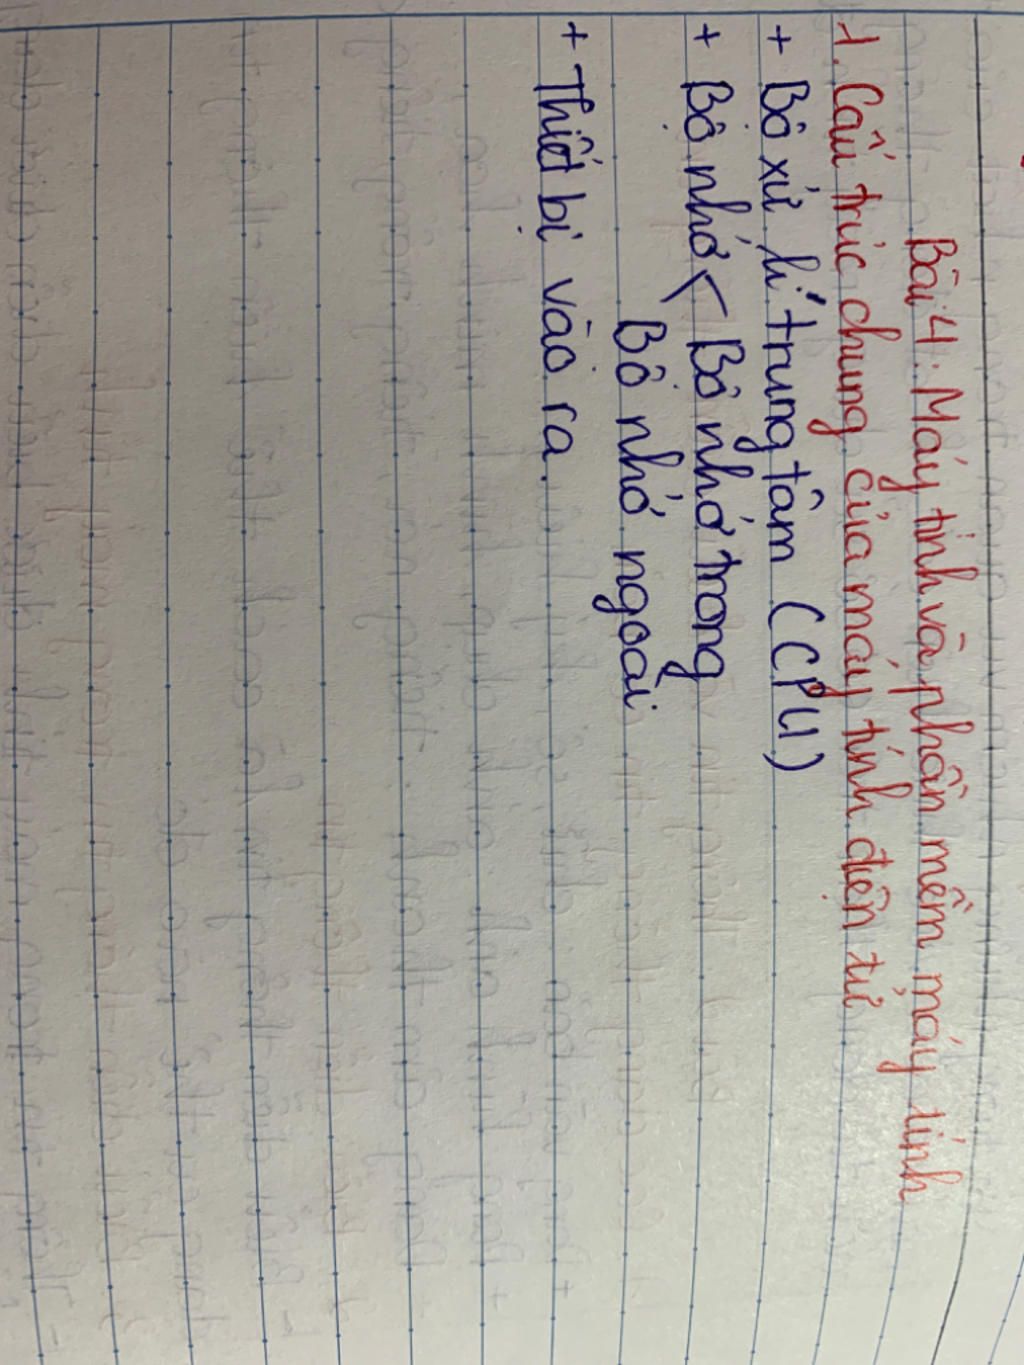 Bài 4: Máy tính và phần mềm máy tính
1. Cấu trúc chung của máy tính điện tử
+ Bộ xử lí trung tâm (CPU)
+ Bộ nhớ < Bộ nhớ trong
Bộ nhớ ngoài
+ Thiết bị vào ra.